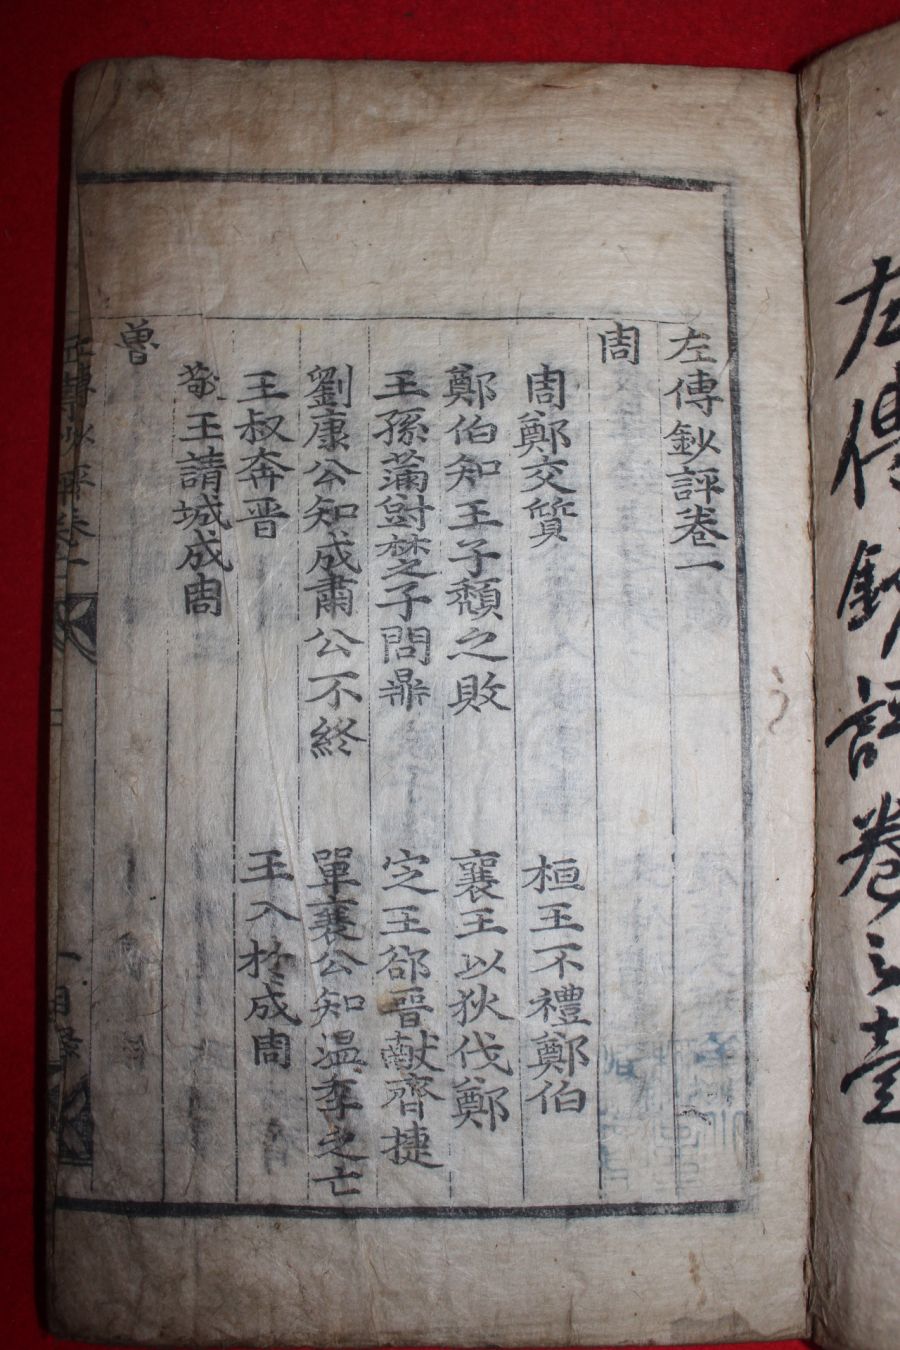 左傳鈔評卷之壹
左傳鈔評卷一
周
周鄭交質 桓王不禮鄭伯
鄭伯知王子頹之敗 襄王以狄伐鄭
王孫滿對楚子問鼎 定王郤晉獻齊捷
劉康公知成肅公不終 單襄公知溫季之亡
王叔奔晉 王入於成周
敬王請城成周
魯
左傳鈔評卷一 目錄 一